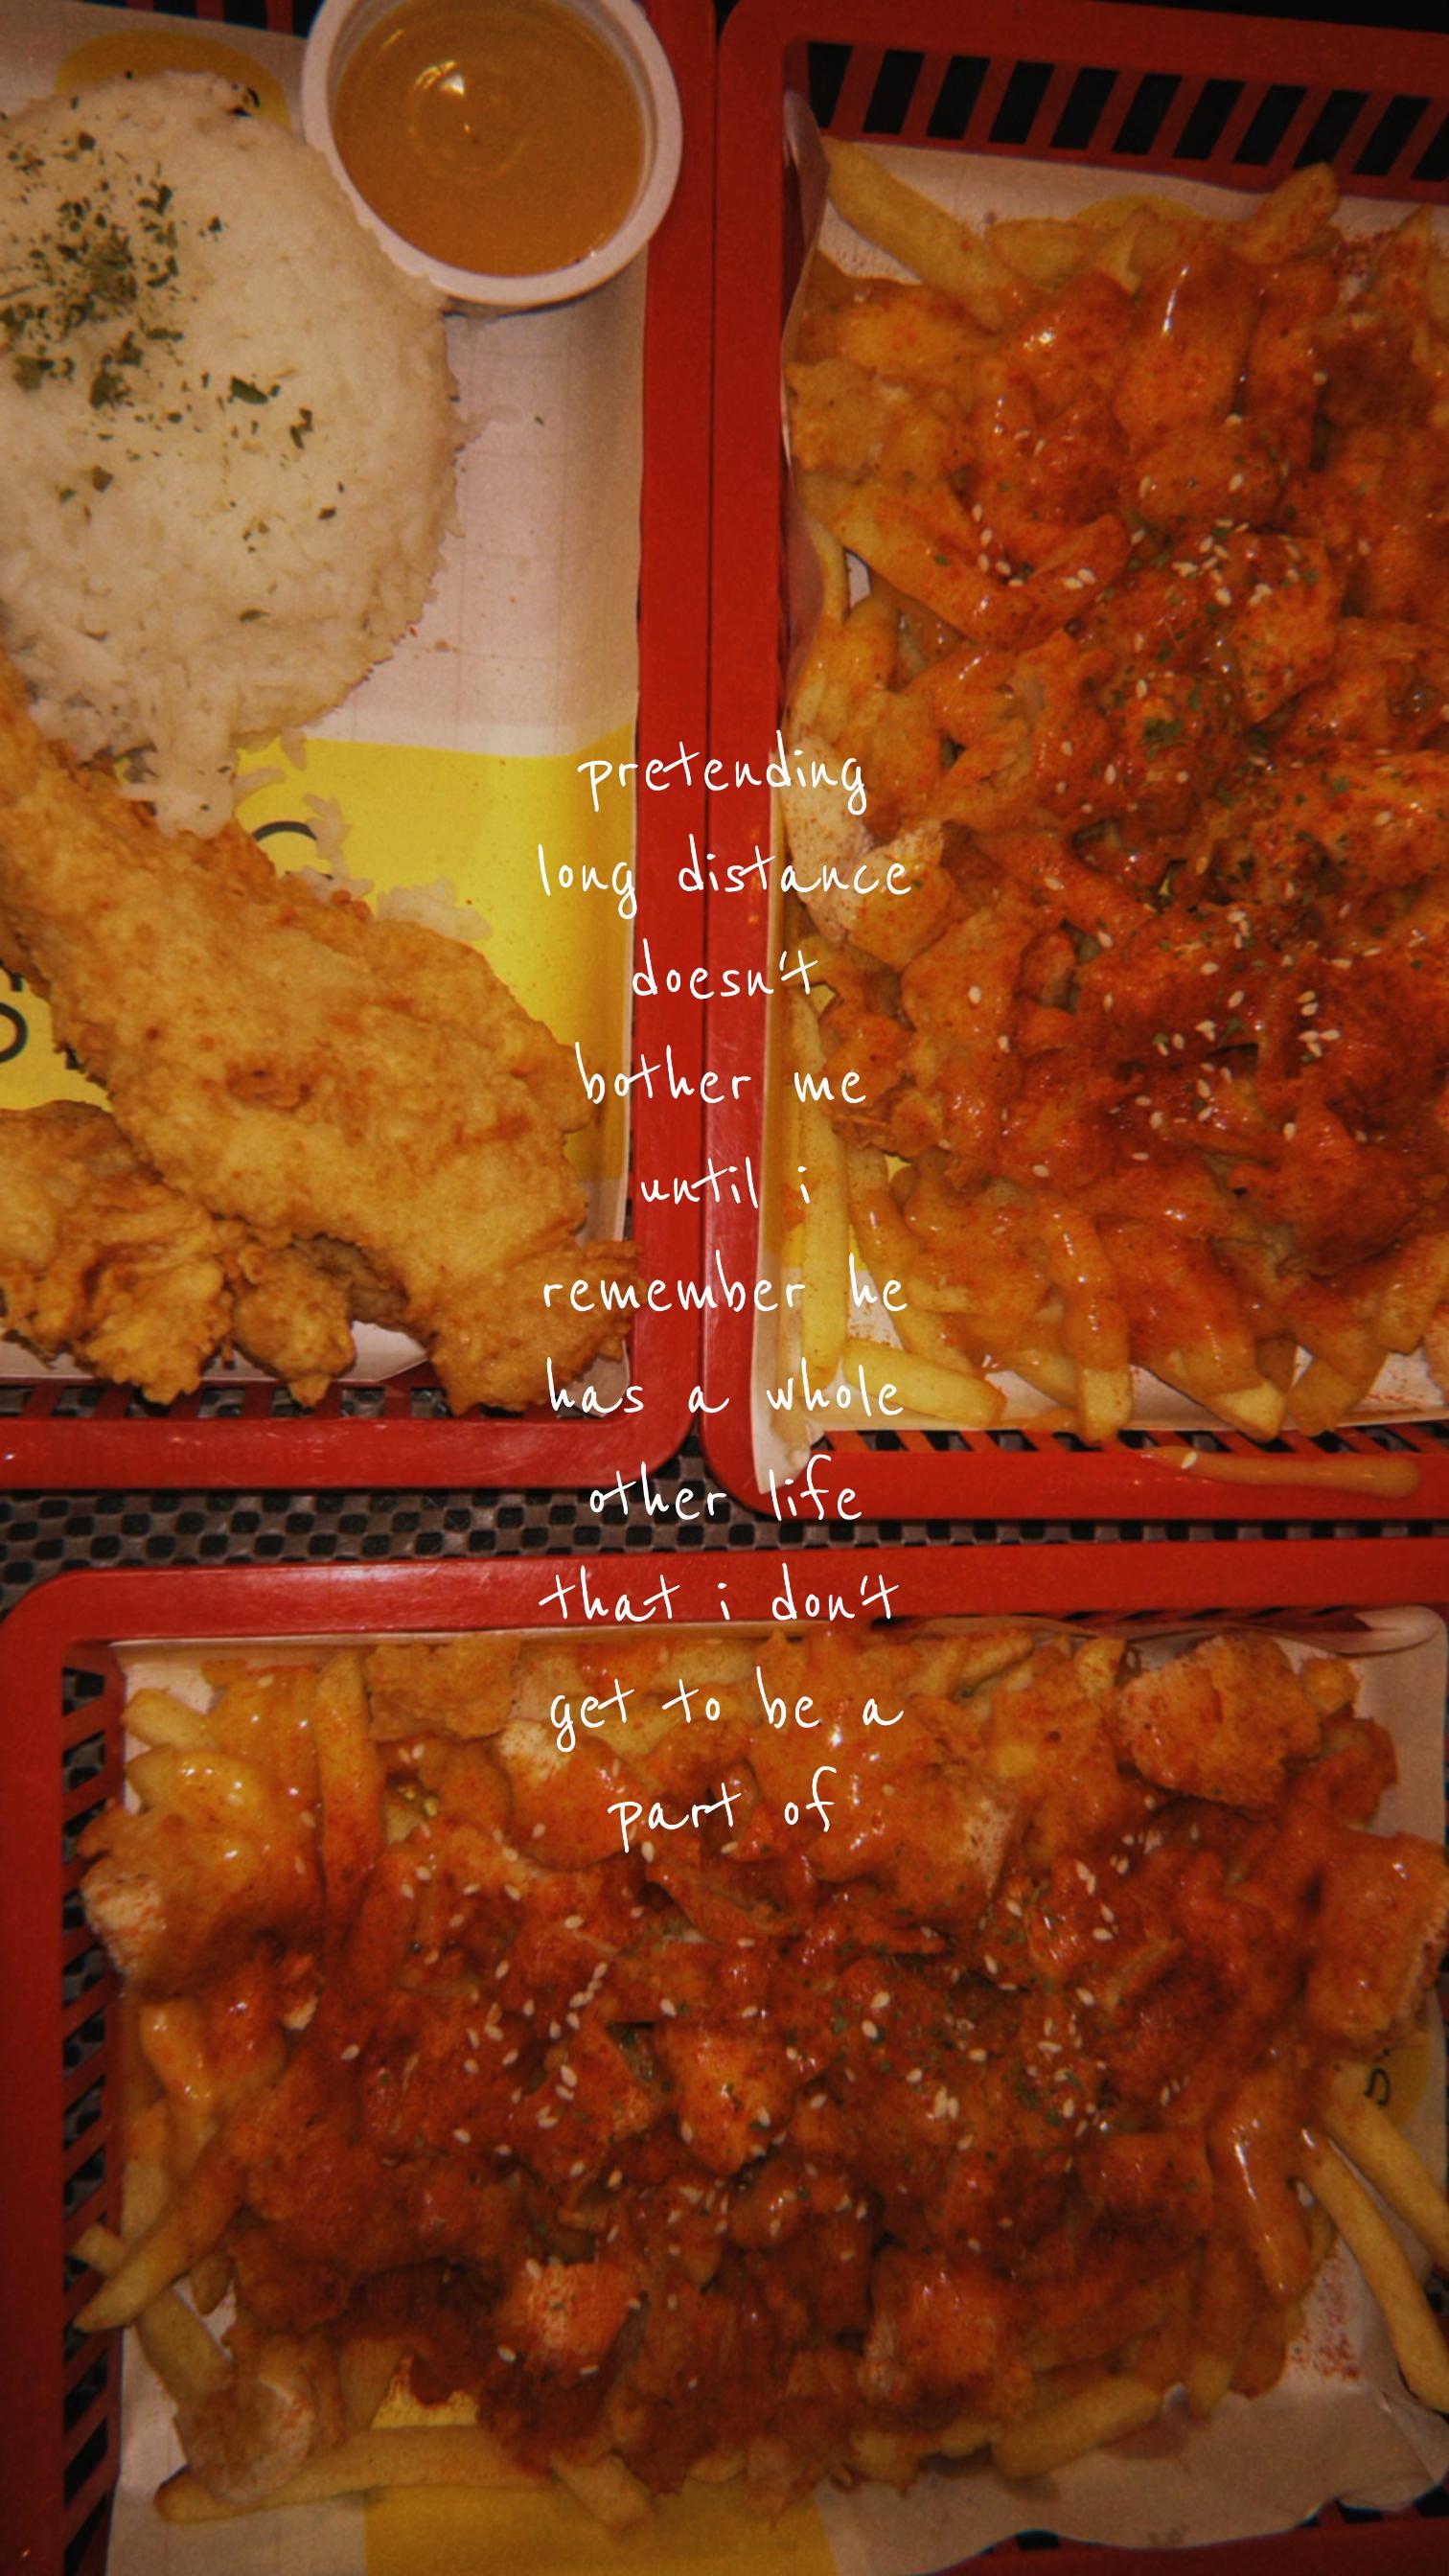 pretending
long distance
doesn't
bother me
until i
remember he
has a whole
other life
that i don't
get to be a
part of